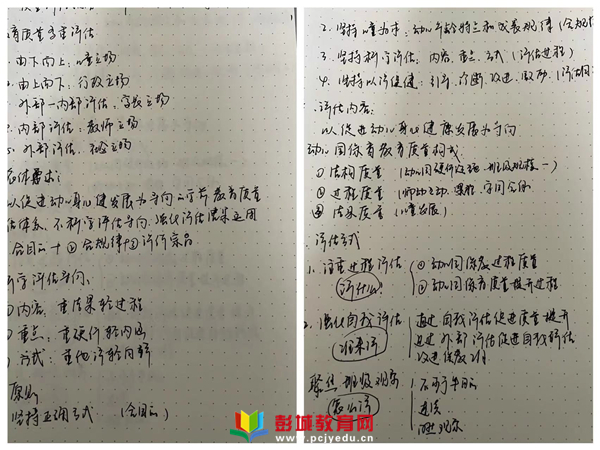 育质量多重评估
由下向上：儿童立场
由上向下：行政立场
外部—内部评估：家长立场
内部评估：教师立场
外部评估
总体要求：
以促进幼儿身心健康发展为导向
不科学评估导向，强化评估结果运用
科学评估导向
内容：重结果轻过程
重点：重硬件轻内涵
方式：重他评轻内部
原则
坚持正确方式（合目的）
2. 坚持儿童为本：幼儿年龄特点和成长规律（合规律
3. 坚持科学评估：内容、重点、方式（评估过程）
4. 坚持以评促建：引导、诊断、改进、激励（评估
评估内容：
以促进幼儿身心健康发展为导向
幼儿园保育教育质量构成
① 结构质量
② 过程质量（师幼互动、课程、家园合作
③ 结果质量（儿童发展）
评估方式
1. 注重过程评估
① 幼儿园保教过程质量
（评什么）
② 幼儿园保育质量提升过程
2. 强化自我评估
通过自我评估促进质量提升
（谁来评）
通过外部评估促进自我评估
聚焦班级观察
（怎么评）
彭城教育网
www.pcjyedu.cn